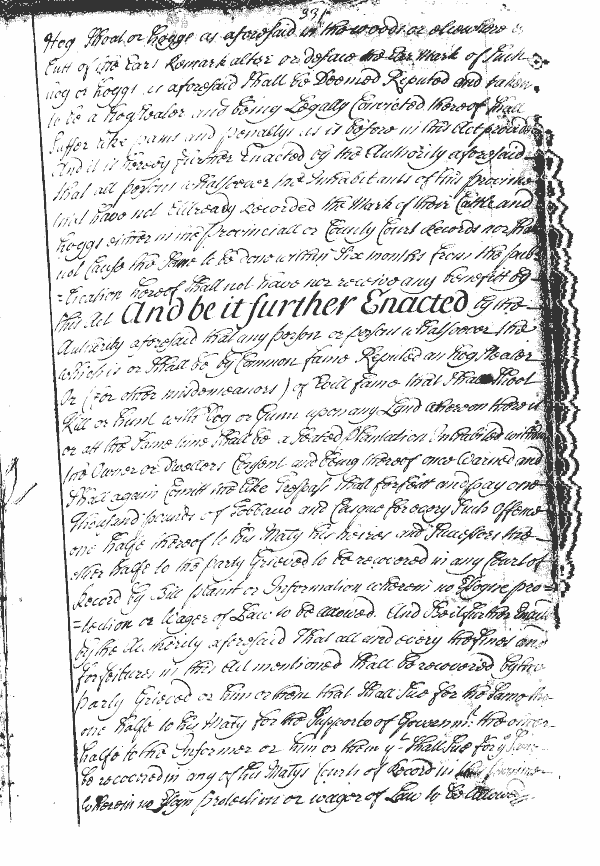 331
Hog Shoat or hogge as aforesaid in the woods or elsewhere or
Cutt of the Ears Remark alter or deface the Ear Mark of such
hog or hoggs as aforesaid Shall be Deemed Reputed and taken
to be a hog Stealer and being Legally Convicted thereof shall
Suffer like pains and penaltys as is before in this Act
And it is hereby further Enacted by the Authority aforesaid
that all persons whatsoever Inhabitants of this province
that have not Allready Recorded the Mark of their Cattle and
hoggs either in the provinciall or County Court Records nor shall
not Cause the same to be done within Six months from the pub
=lication hereof shall not have nor receive any benefitt by
this Act And be it further Enacted by the
Authority aforesaid that any person or persons whatsoever
which is or Shall be by Common fame Reputed an hog Stealer
Or (for other misdemeanors) of Evill fame that Shall Shoot
Kill or hunt with Dog or Gunn upon any Land whereon there is
or att the Same time Shall be a Seated plantation Inhabited without
the Owner or Dwellers Consent and being thereof once Warned and
Shall again Comitt the like Trespass Shall forfeitt and pay one
Thousand pounds of Tobbaco and Casque for every Such offence
one halfe thereof to his Maty his heires and Successors the
other halfe to the party Grieved to be recovered in any Court of
Record by Bill plaint or Information wherein no Essoyne pro=
=tection or Wager of Law to be allowed. And Be it further Enacted
by the Authority aforesaid That all and every the fines and
forfeitures in this Act mentioned Shall be recovered by the
party Grieved or him or them that Shall Sue for the Same the
one halfe to his Maty for the Supporte of Governmt. the other
halfe to the Informer or him or them yt Shall Sue for ye Same
be recovered in any of his Matys Courts of Record in this province
wherein no Essoyn protection or wager of Law to be Allowed